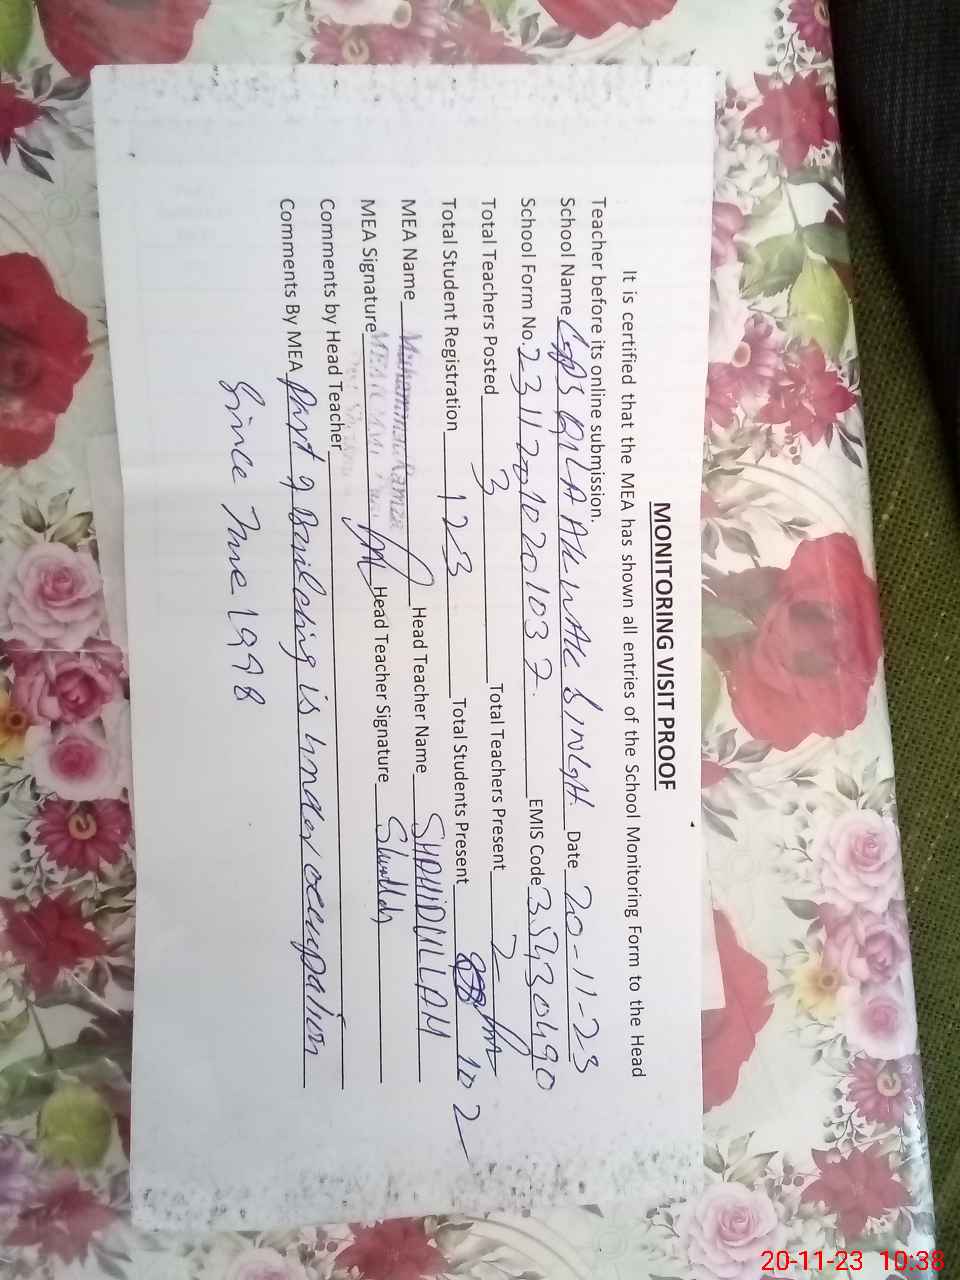 MONITORING VISIT PROOF
It is certified that the MEA has shown all entries of the School Monitoring Form to the Head
Teacher before its online submission.
School Name GPS QILA AKWAK SINGH Date 20-11-23
School Form No. 23112010201037. EMIS Code 35430490
Total Teachers Posted 3 Total Teachers Present 2
Total Student Registration 123 Total Students Present 102
MEA Name Muhammad Ramzan Head Teacher Name SHAHIDULLAH
MEA Signature Head Teacher Signature
Comments by Head Teacher
Comments By MEA Part of Building is under occupation
Since June 1998
20-11-23 10:38